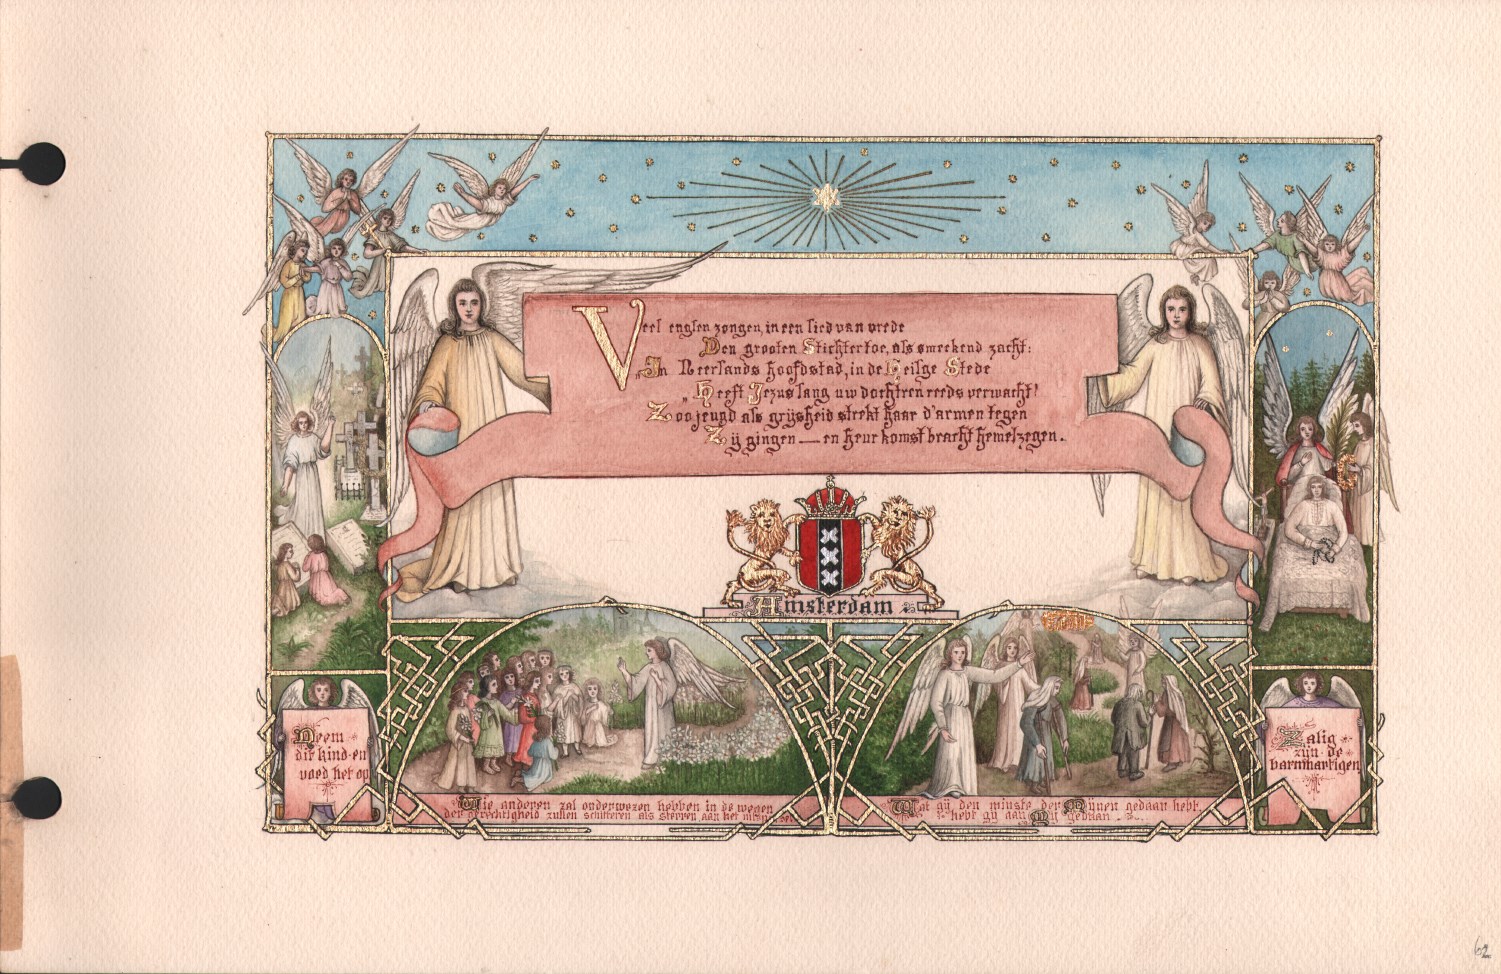 Veel englen zongen, in een lied van vrede
Den grooten Stichter toe, als smeekend zacht:
„In Neerlands hoofdstad, in de Heilge Stede
„Heeft Jezus lang uw dochtren reeds verwacht!
Zoo jeugd als grijsheid strekt haar d'armen tegen
Zij gingen — en heur komst bracht hemelzegen.
Amsterdam
Neem
dit kind en
voed het op
Zalig
zijn de
barmhartigen
Die anderen zal onderwezen hebben in de wegen
der gerechtigheid zullen schitteren als sterren aan het
Wat gij den minste der Mijnen gedaan hebt,
hebt gij aan Mij gedaan
62